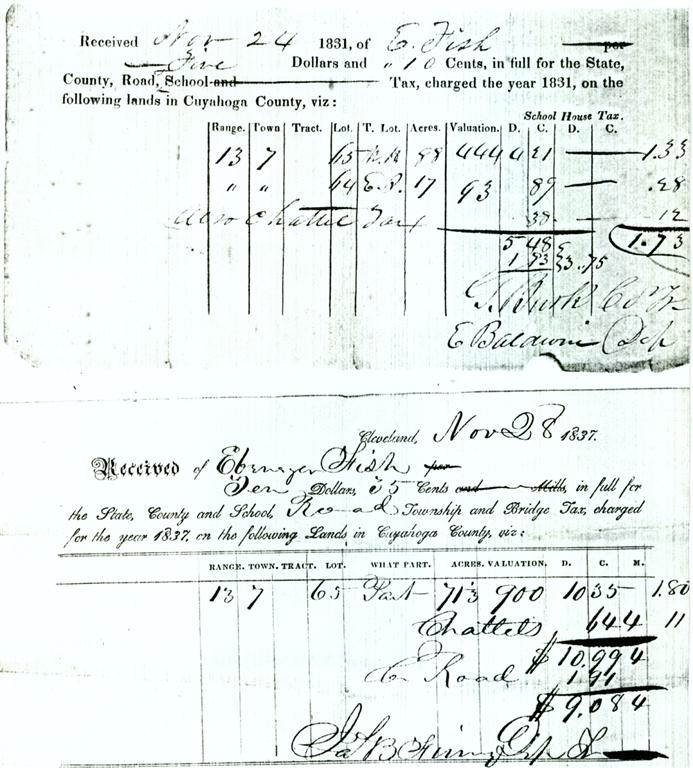 Received Nov 24 1831, of E. Fish per
Five Dollars and " 10 Cents, in full for the State,
County, Road, School and Tax, charged the year 1831, on the
following lands in Cuyahoga County, viz:
School House Tax.
Range. Town Tract. Lot. T. Lot. Acres. Valuation. D. C. D. C.
13 7 65 98 444 4 21 1.33
" " 64 17 93 89 .28
also Chattel Tax .38 12
5 48 1.73
1 73 3.75
Co Tr
E Baldwin Dep
Cleveland, Nov 28 1837.
Received of Ebenezer Fish per
Ten Dollars, 35 Cents and Mills, in full for
the State, County and School, Road Township and Bridge Tax, charged
for the year 1837. on the following Lands in Cuyahoga County, viz:
RANGE. TOWN. TRACT. LOT. WHAT PART. ACRES. VALUATION. D. C. M.
13 7 65 Part 71/3 900 10 35 1.80
Chattels 644 11
$10.994
Road 1.91
$9.084